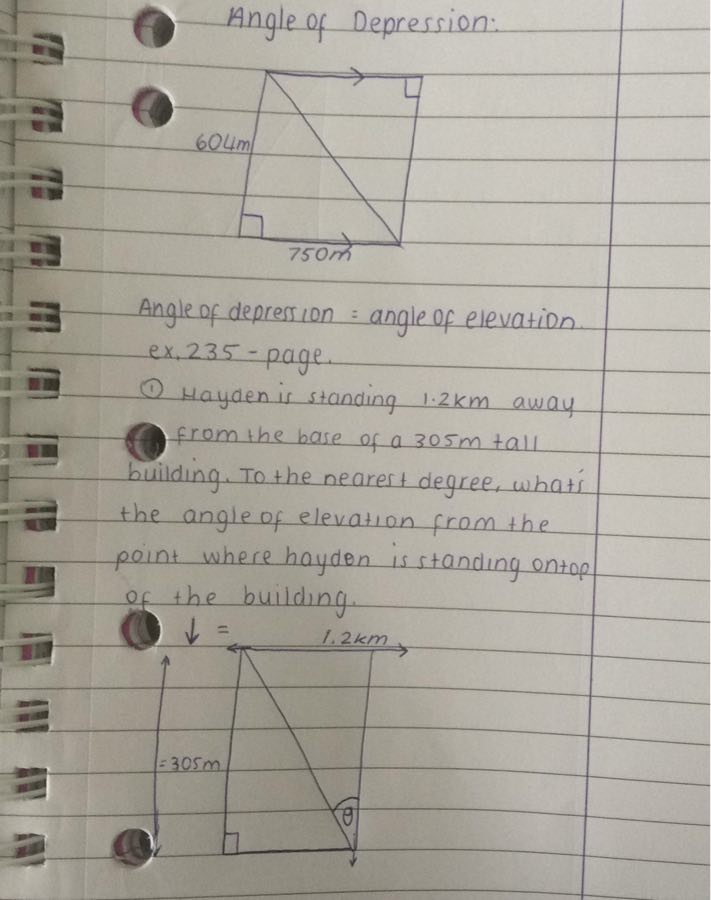 Angle of Depression:
604m
750m
Angle of depression = angle of elevation.
ex. 235 - page.
① Hayden is standing 1.2km away
from the base of a 305m tall
building. To the nearest degree, what's
the angle of elevation from the
point where hayden is standing ontop
of the building.
↓ =
1.2km
= 305m
θ